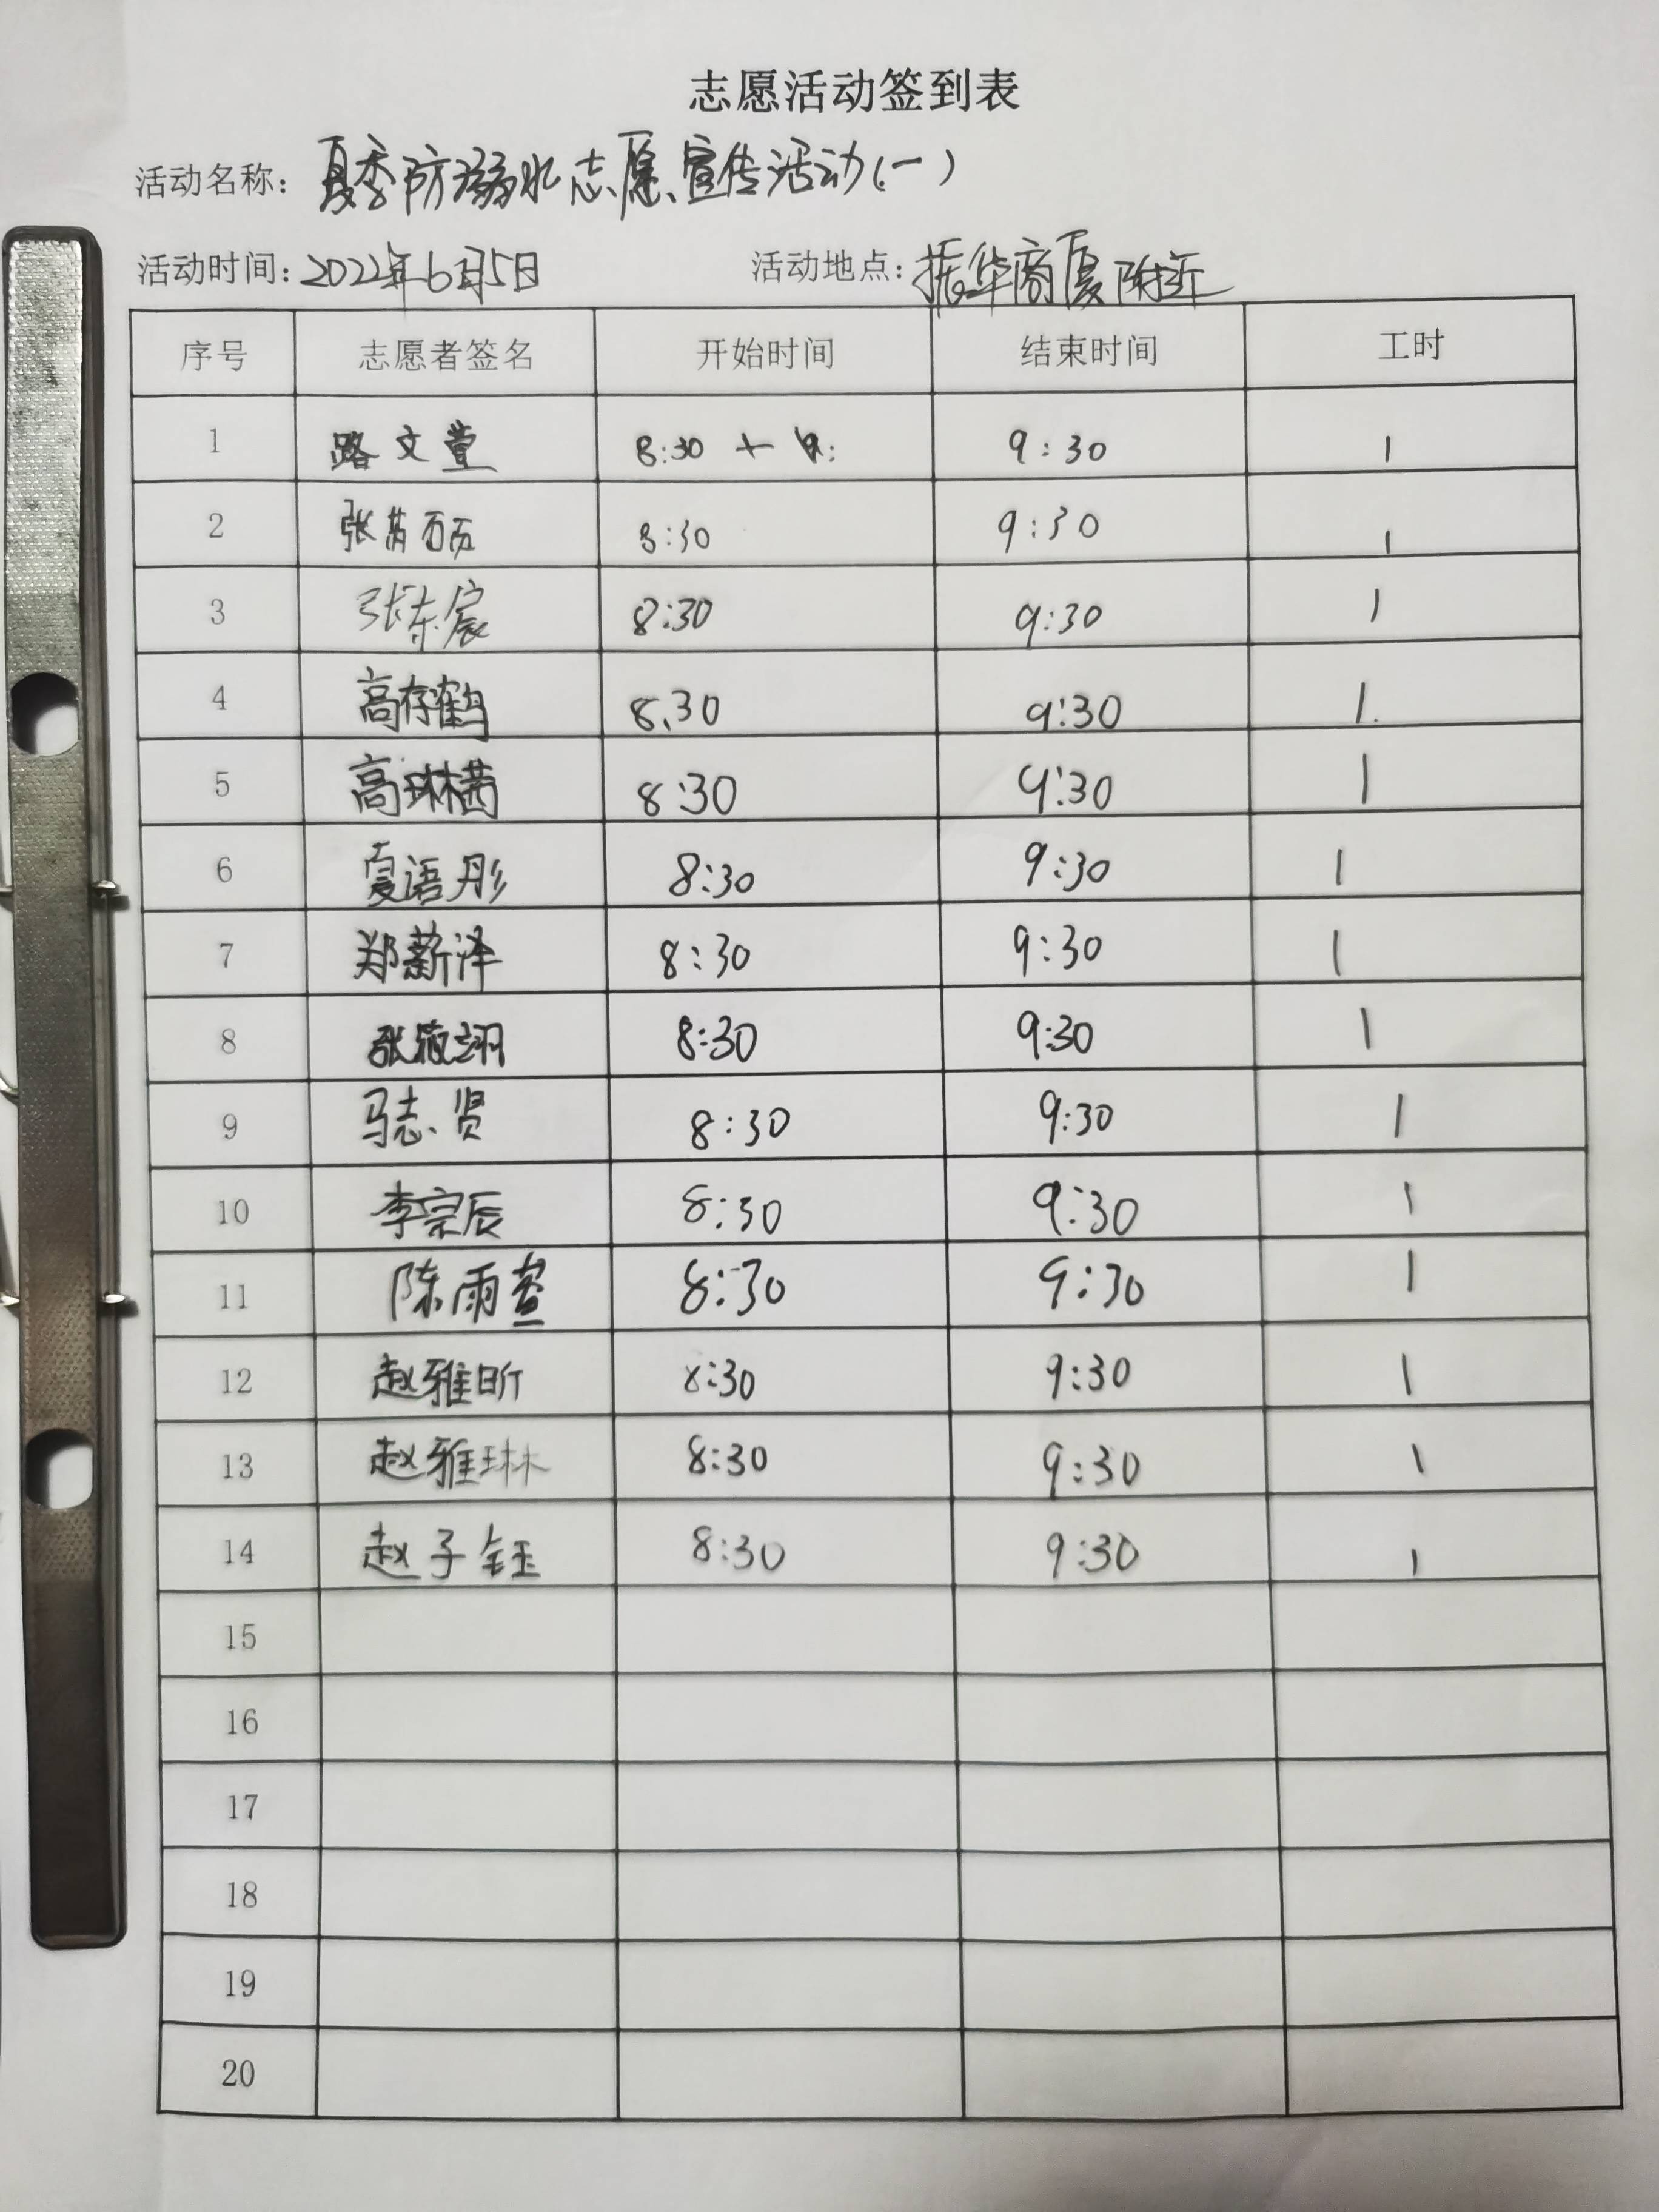 志愿活动签到表
活动名称：夏季防溺水志愿宣传活动(一)
活动时间：2022年6月5日 活动地点：振华商厦附近
序号 志愿者签名 开始时间 结束时间 工时
1 路文萱 8:30 9:30 1
2 张 8:30 9:30 1
3 张东宸 8:30 9:30 1
4 高存鹤 8.30 9:30 1.
5 高琳茜 8:30 9:30 1
6 夏语彤 8:30 9:30 1
7 郑薪泽 8:30 9:30 1
8 张 翊 8:30 9:30 1
9 马志贤 8:30 9:30 1
10 李宗辰 8:30 9:30 1
11 陈雨萱 8:30 9:30 1
12 赵雅昕 8:30 9:30 1
13 赵雅琳 8:30 9:30 1
14 赵子钰 8:30 9:30 1
15
16
17
18
19
20